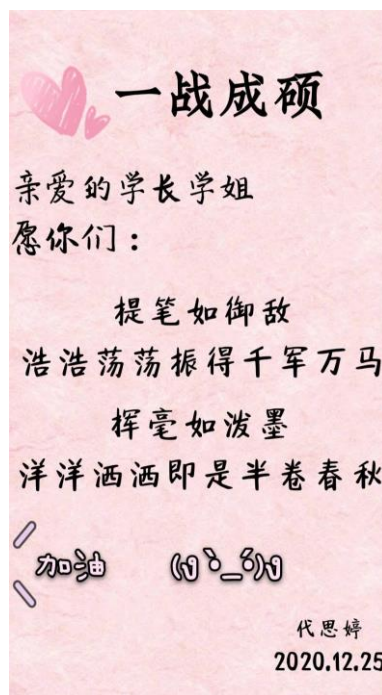 一战成硕
亲爱的学长学姐
愿你们：
提笔如御敌
浩浩荡荡振得千军万马
挥毫如泼墨
洋洋洒洒即是半卷春秋
加油 (ง •̀_•́)ง
代思婷
2020.12.25